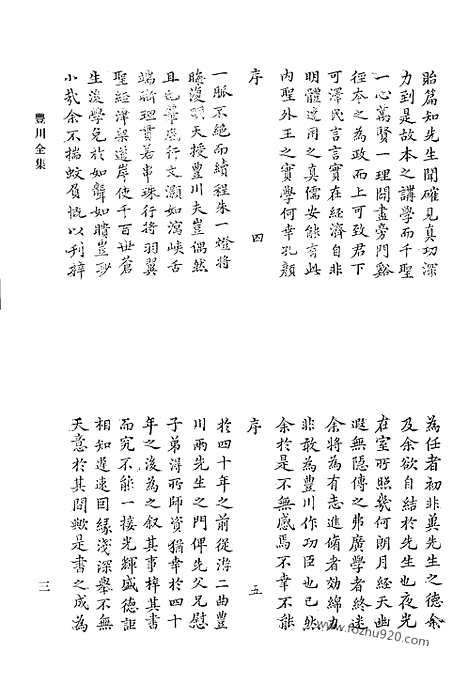 貽篇知先生聞確見真功深
力到是故本之講學而千聖
一心萬賢一理闢盡旁門谿
徑本之為政而上可致君下
可澤民言言實在經濟自非
明體達用之真儒安能有此
內聖外王之實學何幸孔顏
序
四
一脈不絕而續程朱一燈將
晦復明天授豐川夫豈偶然
且也筆底行文灝如瀉峽舌
端晰理貫若串珠行將羽翼
聖經津梁道岸使千百世蒼
生後學免於如聾如瞶豈
小哉余不揣蚊負慨以刊梓
豐川全集
為任者初非冀先生之德余
及余欲自結於先生也夜光
在室所照幾何朗月經天幽
遐無隱傳之弗廣學者終迷
余將為有志進脩者効綿力
非敢為豐川作功臣也已然
余於是不無感焉不幸不能
序
五
於四十年之前從游二曲豐
川兩先生之門俾先父兄慰
子弟得所師資猶幸於四十
年之後為之叙其事梓其書
而究不能一接光輝盛德詎
相知遲速因緣淺深舉不無
天意於其間歟是書之成為
三
www.fozhu920.com